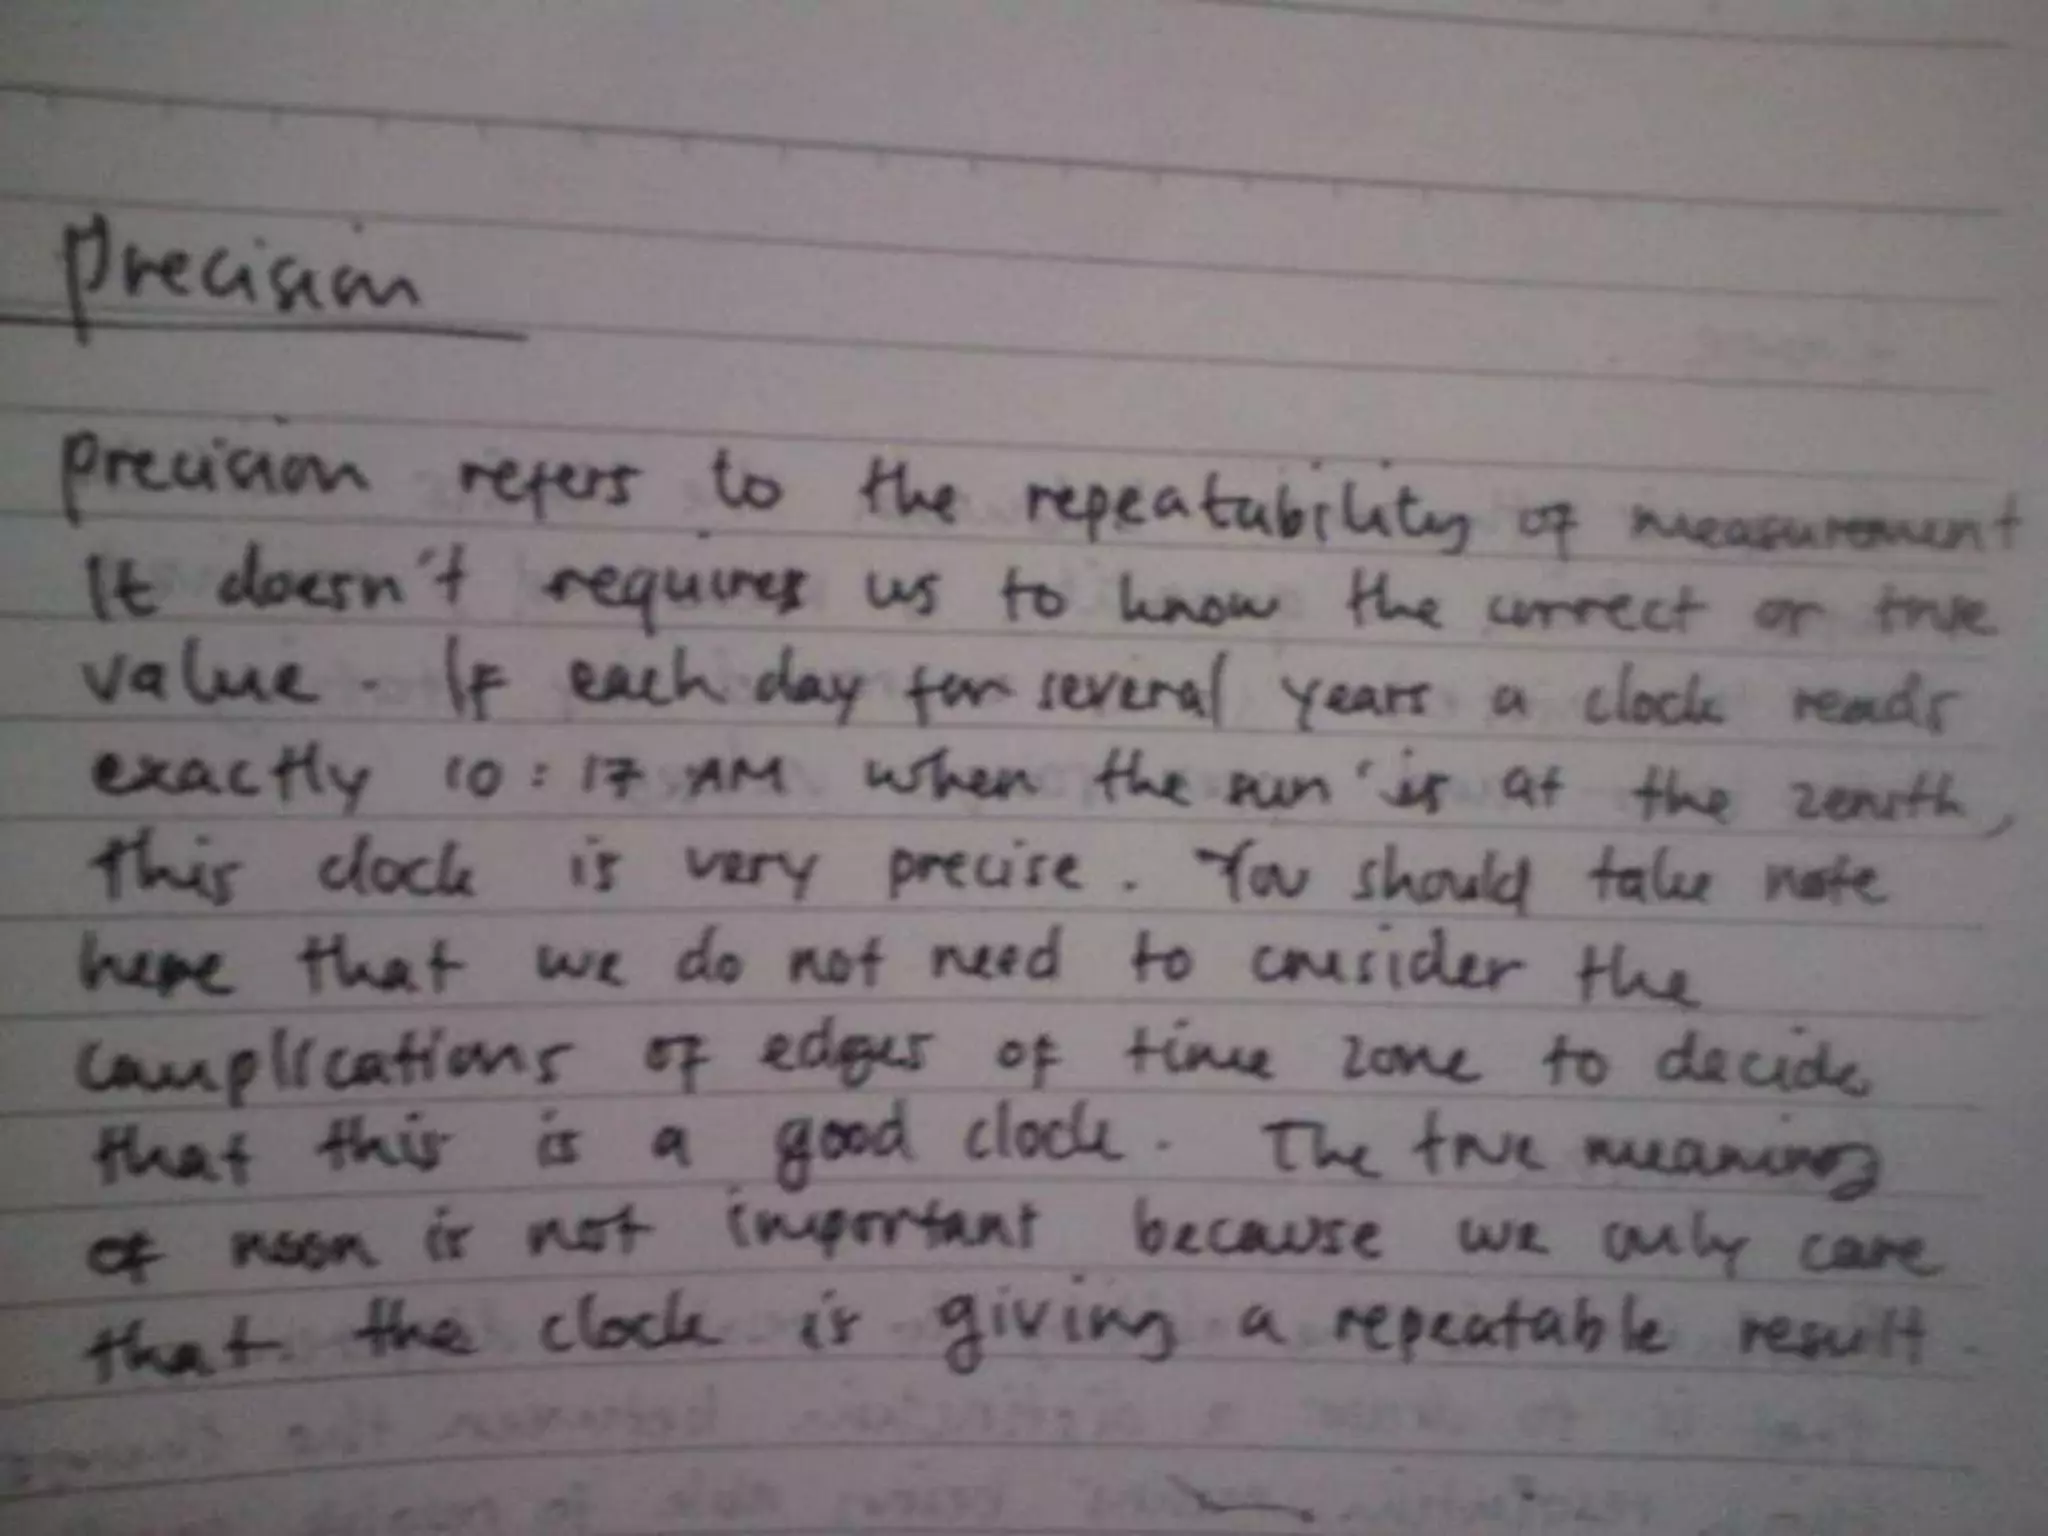 Precision
Precision refers to the repeatability of measurement
It doesn't requires us to know the correct or true
value. If each day for several years a clock reads
exactly 10:17 AM when the sun is at the zenith,
this clock is very precise. You should take note
here that we do not need to consider the
complications of edges of time zone to decide
that this is a good clock. The true meaning
of noon is not important because we only care
that the clock is giving a repeatable result.